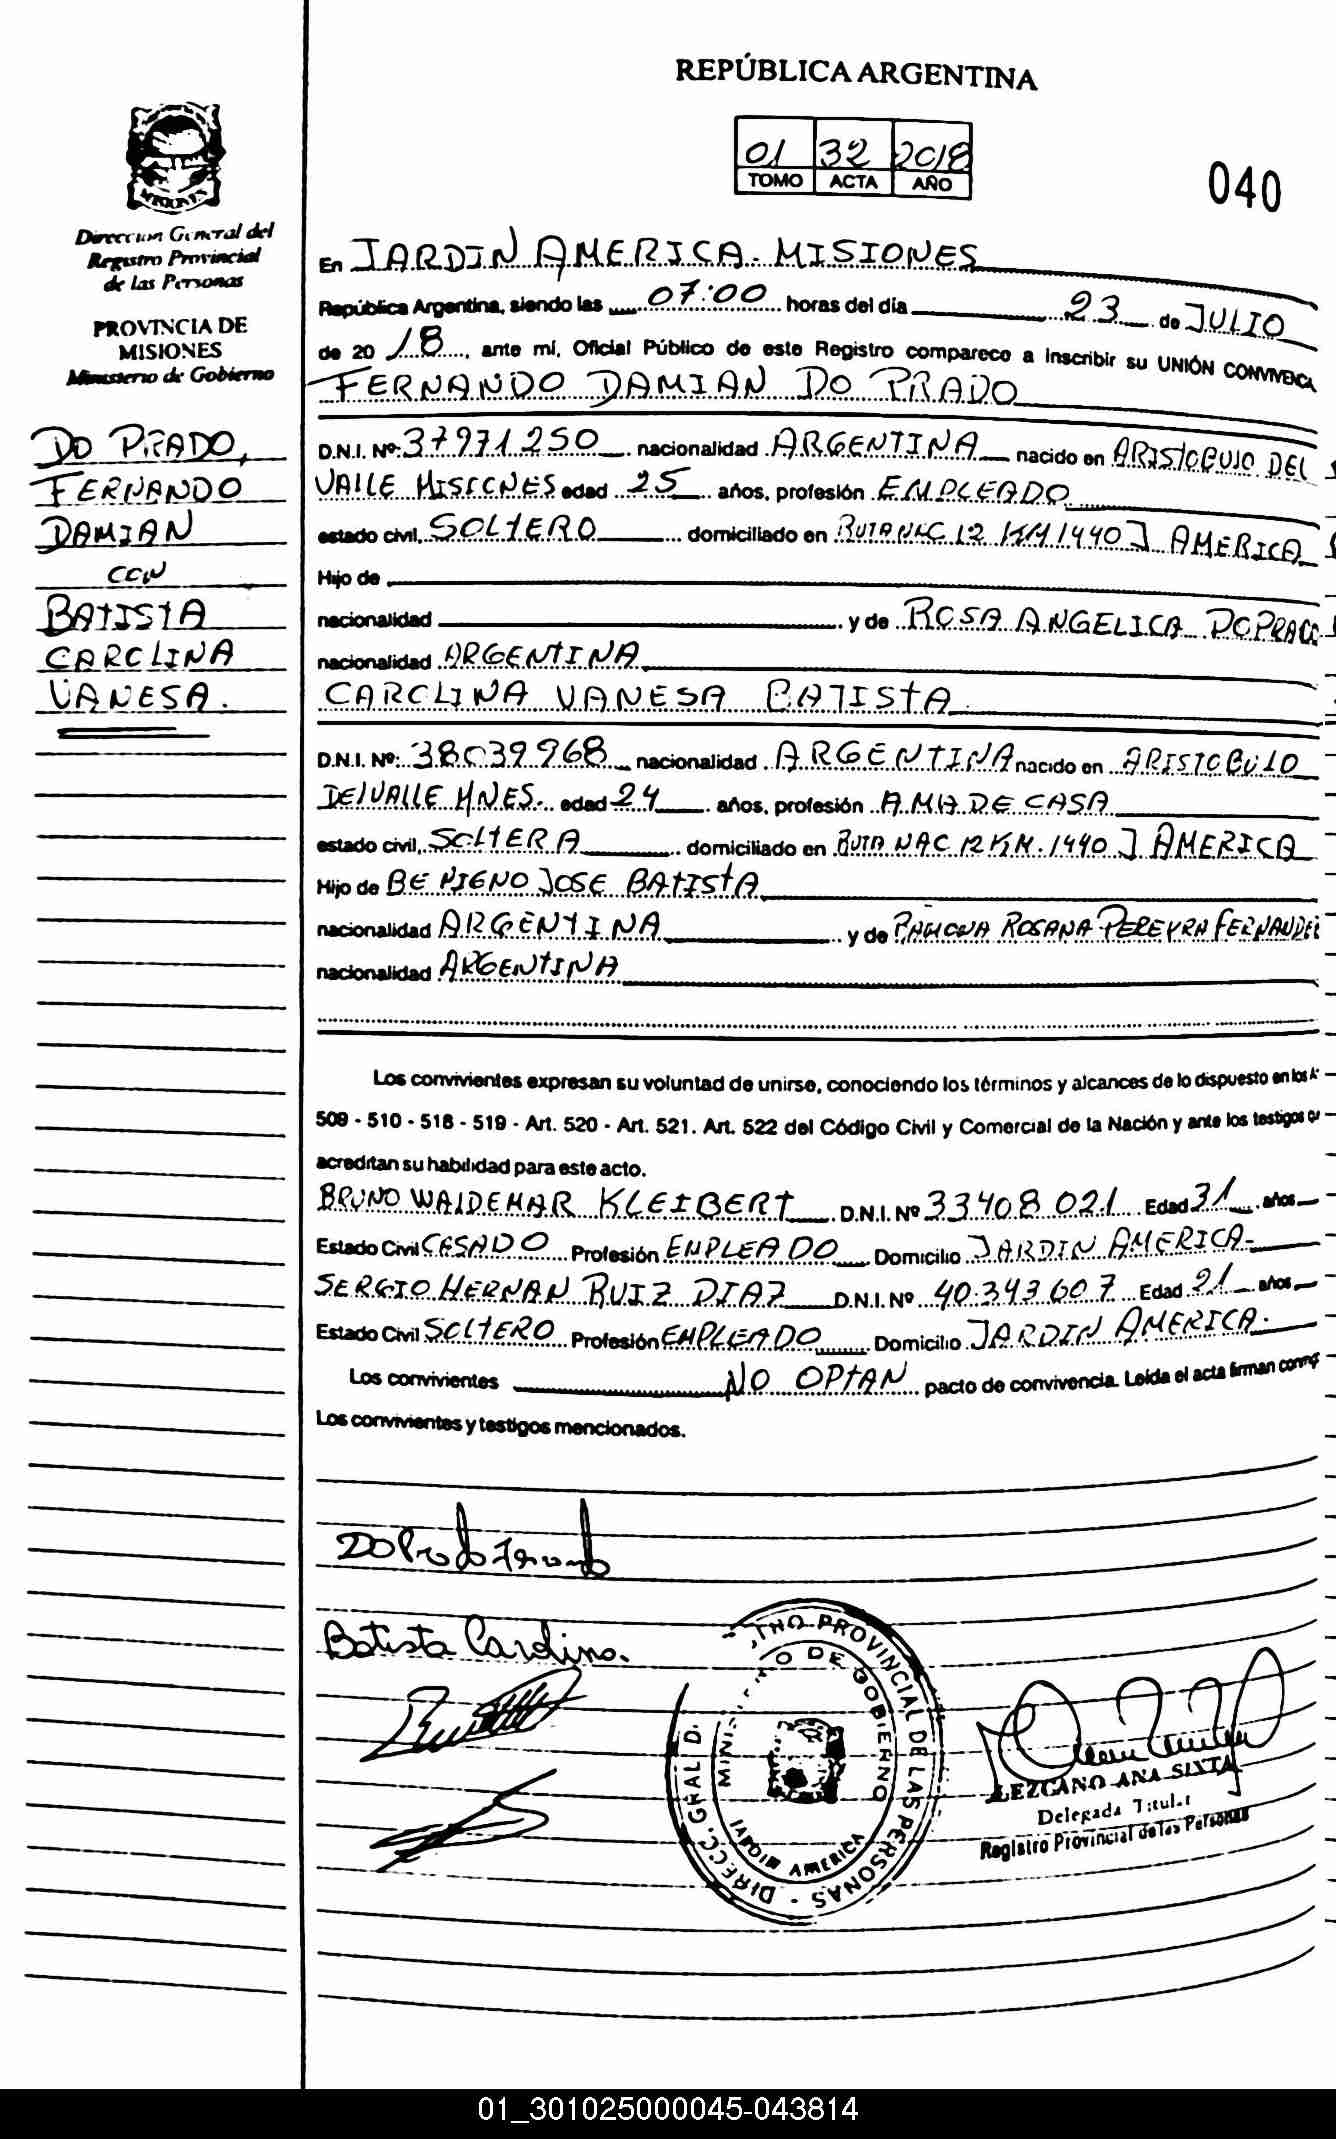 REPÚBLICA ARGENTINA
01 32 2018
TOMO ACTA AÑO
040
MISIONES
Dirección General del
Registro Provincial
de las Personas
PROVINCIA DE
MISIONES
Ministerio de Gobierno
DO PRADO,
FERNANDO
DAMIAN
CON
BATISTA
CAROLINA
VANESA.
En JARDIN AMERICA. MISIONES
República Argentina, siendo las 07:00 horas del día 23 de JULIO
de 20 18, ante mí, Oficial Público de este Registro comparece a inscribir su UNIÓN CONVIVENCIA
FERNANDO DAMIAN DO PRADO
D.N.I. Nº 37971250 nacionalidad ARGENTINA nacido en ARISTOBULO DEL
VALLE MISIONES edad 25 años, profesión EMPLEADO
estado civil, SOLTERO domiciliado en RUTA NAC 12 KM 1440 J AMERICA
Hijo de
nacionalidad y de ROSA ANGELICA DO PRADO
nacionalidad ARGENTINA
CAROLINA VANESA BATISTA
D.N.I. Nº: 38039968 nacionalidad ARGENTINA nacido en ARISTOBULO
DEL VALLE MNES. edad 24 años, profesión AMA DE CASA
estado civil, SOLTERA domiciliado en RUTA NAC 12 KM. 1440 J AMERICA
Hijo de BENIGNO JOSE BATISTA
nacionalidad ARGENTINA y de RAMONA ROSANA PEREYRA FERNANDEZ
nacionalidad ARGENTINA
Los convivientes expresan su voluntad de unirse, conociendo los términos y alcances de lo dispuesto en los
509 - 510 - 518 - 519 - Art. 520 - Art. 521. Art. 522 del Código Civil y Comercial de la Nación y ante los testigos
acreditan su habilidad para este acto.
BRUNO WALDEMAR KLEIBERT D.N.I. Nº 33408021 Edad 31 años
Estado Civil CASADO Profesión EMPLEADO Domicilio JARDIN AMERICA
SERGIO HERNAN RUIZ DIAZ D.N.I. Nº 40.343.607 Edad 21 años
Estado Civil SOLTERO Profesión EMPLEADO Domicilio JARDIN AMERICA.
Los convivientes NO OPTAN pacto de convivencia. Leída el acta firman
Los convivientes y testigos mencionados.
Do Prado Fernando
Batista Carolina.
DIRECC. GRAL D. PROVINCIAL DE LAS PERSONAS
DE GOBIERNO
JARDIN AMERICA
LEZCANO ANA SIXTA
Delegada Titular
Registro Provincial de las Personas
01_301025000045-043814